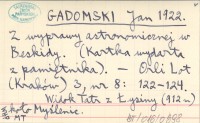 GADOMSKI Jan 1922.
Z wyprawy astronomicznej w
Beskidy. (Kartka wydarta
z pamiętnika). — Orli Lot
(Kraków) 3, nr 8: 122-124.
Widok Tatr z Łysiny (912 m)
koło Myślenic.
MT